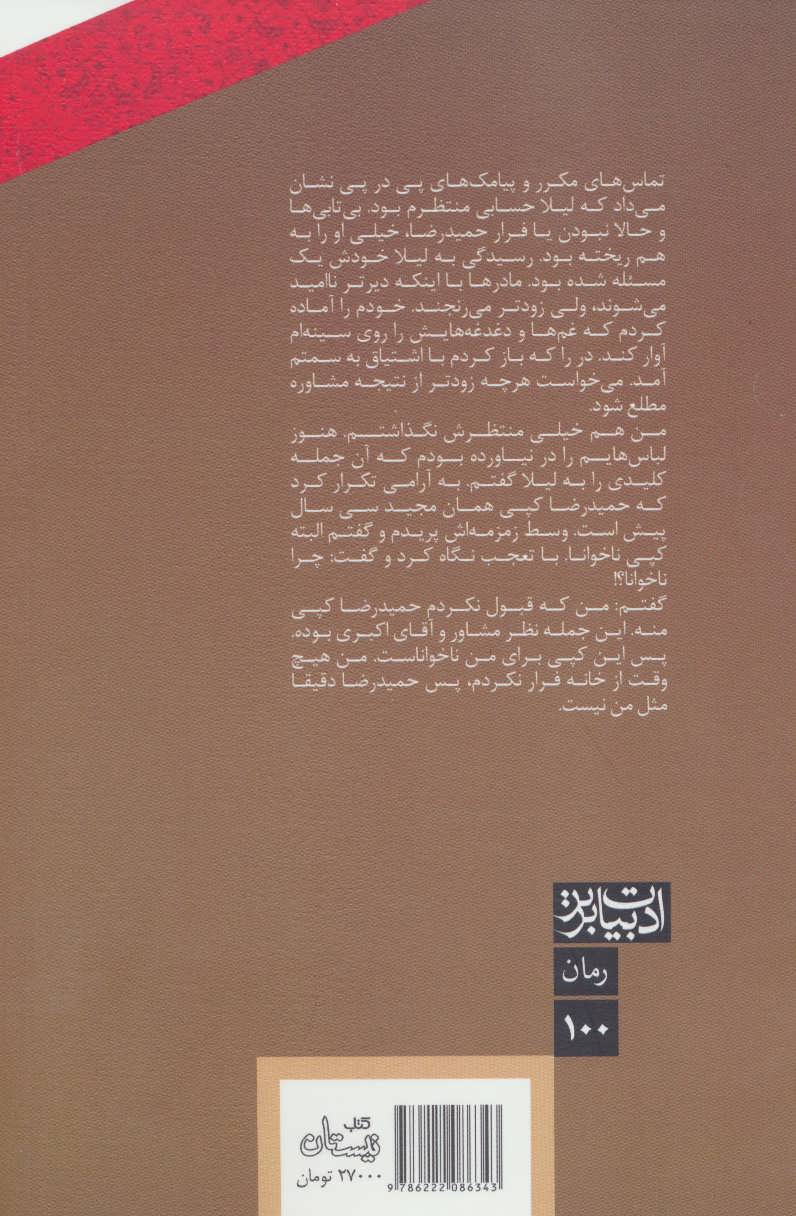 تماس‌های مکرر و پیامک‌های پی در پی نشان
می‌داد که لیلا حسابی منتظرم بود. بی‌تابی‌ها
و حالا نبودن یا فرار حمیدرضا، خیلی او را به
هم ریخته بود. رسیدگی به لیلا خودش یک
مسئله شده بود. مادرها با اینکه دیرتر ناامید
می‌شوند، ولی زودتر می‌رنجند. خودم را آماده
کردم که غم‌ها و دغدغه‌هایش را روی سینه‌ام
آوار کند. در را که باز کردم با اشتیاق به سمتم
آمد. می‌خواست هرچه زودتر از نتیجه مشاوره
مطلع شود.
من هم خیلی منتظرش نگذاشتم. هنوز
لباس‌هایم را در نیاورده بودم که آن جمله
کلیدی را به لیلا گفتم. به آرامی تکرار کرد
که حمیدرضا کپی همان مجید سی سال
پیش است. وسط زمزمه‌اش پریدم و گفتم البته
کپی ناخوانا. با تعجب نگاه کرد و گفت: چرا
ناخوانا؟!
گفتم: من که قبول نکردم حمیدرضا کپی
منه. این جمله نظر مشاور و آقای اکبری بوده.
پس این کپی برای من ناخواناست. من هیچ
وقت از خانه فرار نکردم، پس حمیدرضا دقیقا
مثل من نیست.
ادبیات برتر
رمان
۱۰۰
کتاب
نیستان
۲۷۰۰۰ تومان
9 786222 086343